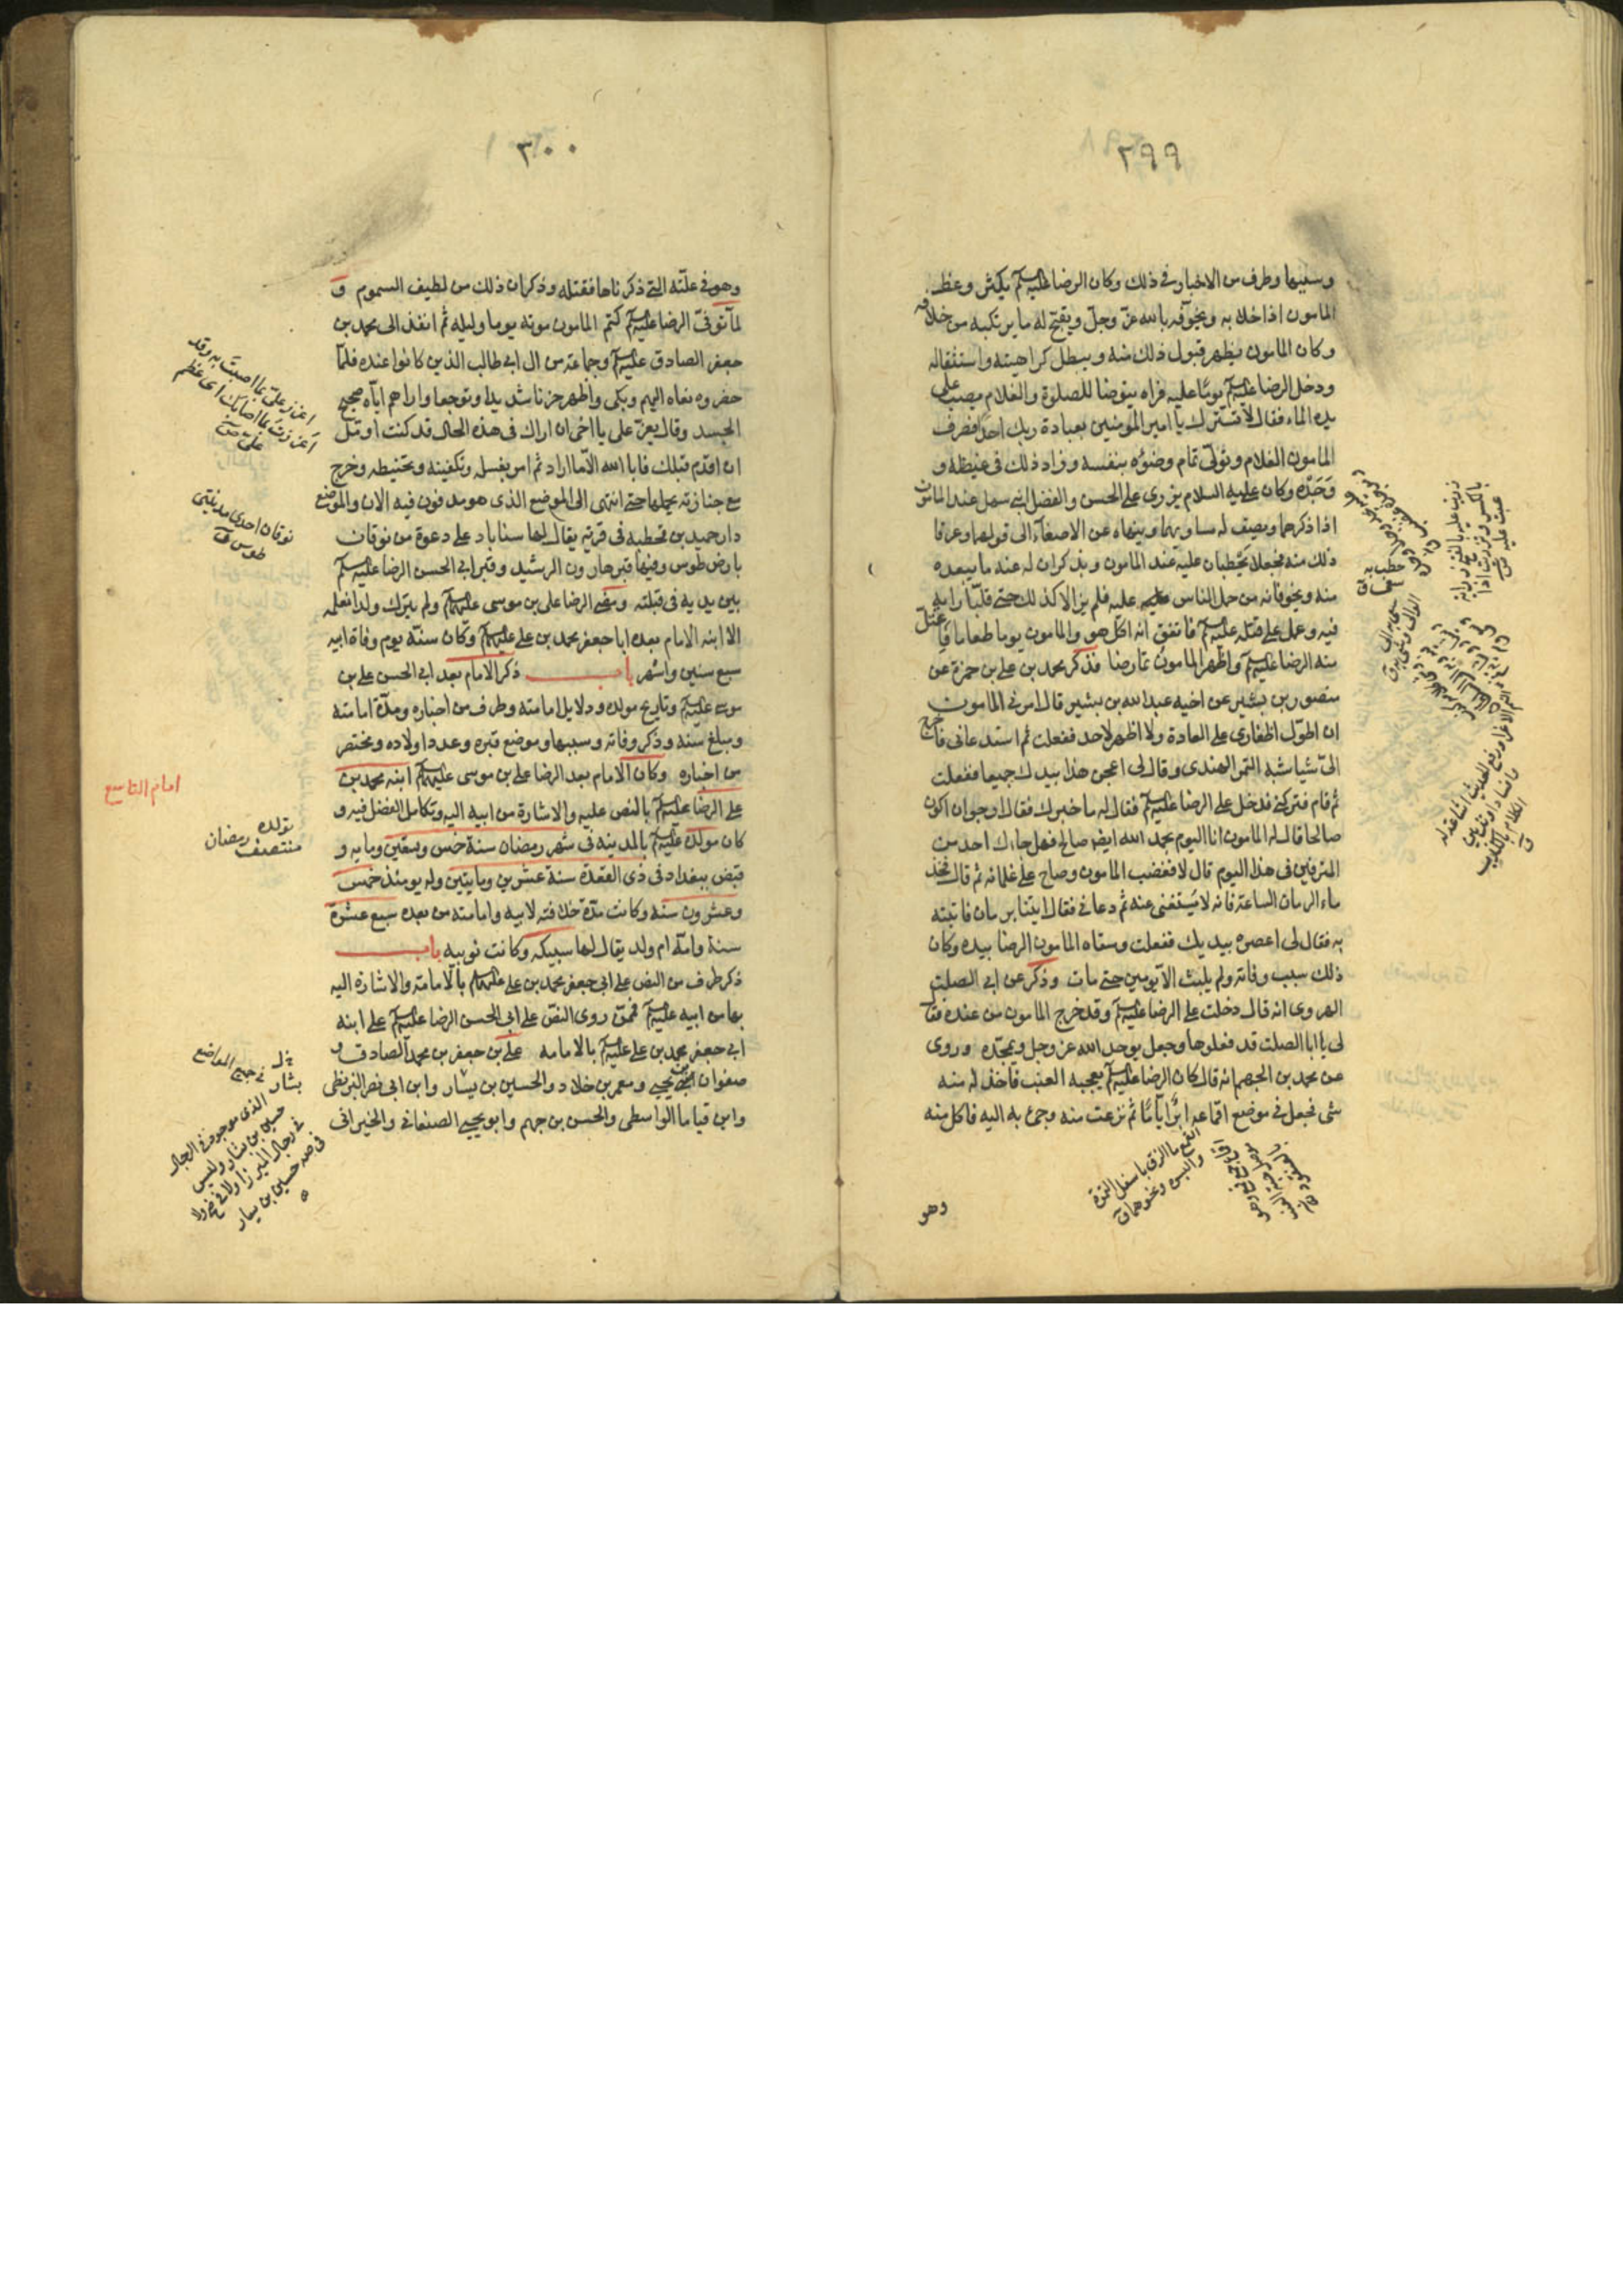 ٢٩٩
وسببها وطرف من الاخبار في ذلك وكان الرضا عليه السلم يكثر وعظ
المامون اذا خلا به ويخوّفه بالله عزّ وجلّ ويقبّح له ما يرتكبه من خلافه
وكان المامون يظهر قبول ذلك منه ويبطن كراهيته واستثقاله
ودخل الرضا عليه السلم يومًا عليه فراه يتوضا للصلوة والغلام يصب على
يده الماء فقال لا تشرك يا امير المومنين بعبادة ربك احدًا فصرف
المامون الغلام وتولّى تمام وضوءه بنفسه وزاد ذلك في غيظه و
وَجَدِه وكان عليه السلام يزرى على الحسن والفضل ابني سهل عند المامون
اذا ذكرهما ويصف له مساويهما وينهاه عن الاصغاء الى قولهما وعرفا
ذلك منه فجعلا يحطبان عليه عند المامون ويذكران له عنه ما يبعده
منه ويخوفانه من حمل الناس عليه فلم يزالا كذلك حتى قلّبا رايه
فيه وعمل على قتله عليه السلم فاتفق انه اكل هو والمامون يوما طعاما فاعتلّ
منه الرضا عليه السلم واظهر المامون تمارضا فذكر محمد بن على بن حمزة عن
منصور بن بشير عن اخيه عبدالله بن بشير قال امرنى المامون
ان اطوّل اظفارى على العادة ولا اظهر لاحد ففعلت ثم استدعانى فاخرج
الىّ شيا شبه التمر الهندى وقال لى اعجن هذا بيديك جميعا ففعلت
ثم قام فتركنى فدخل على الرضا عليه السلم فقال له ما خبرك فقال ارجوا ان اكون
صالحا قال له المامون انا اليوم بحمد الله ايضا صالح فهل جاءك احد من
المترفين فى هذا اليوم قال لا فغضب المامون وصاح على غلمانه ثم قال فخذ
ماء الرمان الساعة فانه لا يستغنى عنه ثم دعانى فقال ايتنا برمان فاتيته
به فقال لى اعصره بيديك ففعلت وسقاه المامون الرضا بيده وكان
ذلك سبب وفاته ولم يلبث الا يومين حتى مات وذكر عن ابى الصلت
الهروى انه قال دخلت على الرضا عليه السلم وقد خرج المامون من عنده فقال
لى يا ابا الصلت قد فعلوها وجعل يوحد الله عز وجل ويمجّده وروى
عن محمد بن الجهم انه قال كان الرضا عليه السلم يعجبه العنب فاخذ له منه
شى فجعل فى موضع اقماعه ابرًا ايّامًا ثم نزعت منه وجئ به اليه فاكل منه
وهو
٣٠٠
وهو فى علّته التى ذكرناها فقتله وذكر ان ذلك من لطيف السموم و
لمّا توفىّ الرضا عليه السلم كتم المامون موته يوما وليلة ثم انفذ الى محمد بن
جعفر الصادق عليه السلم وجماعة من ال ابى طالب الذين كانوا عنده فلمّا
حضروه نعاه اليهم وبكى واظهر حزنا شديدا وتوجعا واراهم ايّاه صحيح
الجسد وقال يعزّ على يا اخى ان اراك فى هذه الحال قد كنت اومّل
ان اقدم قبلك فابا الله الّا ما اراد ثم امر بغسله وتكفينه وتحنيطه وخرج
مع جنازته يحملها حتى انتهى الى الموضع الذى هو مدفون فيه الان والموضع
دار حميد بن قحطبه فى قرية يقال لها سناباد على دعوة من نوقان
بارض طوس وفيها قبر هارون الرشيد وقبر ابى الحسن الرضا عليه السلم
بين يديه فى قبلته ومضى الرضا على بن موسى عليهما السلم ولم يترك ولدا نعلمه
الا ابنه الامام بعده ابا جعفر محمد بن على عليهما السلم وكان سنّه يوم وفاة ابيه
سبع سنين واشهر باب ذكر الامام بعد ابى الحسن على بن
موسى عليه السلم وتاريخ مولده ودلايل امامته وطرف من اخباره ومدّة امامته
ومبلغ سنه وذكر وفاته وسببها وموضع قبره وعدد اولاده ومختصر
من اخباره وكان الامام بعد الرضا على بن موسى عليهما السلم ابنه محمد بن
على الرضا عليه السلم بالنص عليه والاشارة من ابيه اليه وتكامل الفضل فيه و
كان مولده عليه السلم بالمدينة فى شهر رمضان سنة خمس وتسعين ومايه و
قبض ببغداد فى ذى القعدة سنة عشرين ومايتين وله يومئذ خمس
وعشرون سنة وكانت مدّة خلافته لابيه وامامته من بعده سبع عشرة
سنة وامّه ام ولد يقال لها سبيكه وكانت نوبيه باب
ذكر طرف من النص على ابى جعفر محمد بن على عليهما السلم بالامامة والاشارة اليه
بها من ابيه عليه السلم فممن روى النصّ على ابى الحسن الرضا عليه السلم على ابنه
ابى جعفر محمد بن على عليه السلم بالامامه على بن جعفر بن محمد الصادق و
صفوان بن يحيى ومعمر بن خلاد والحسين بن بشار وابن ابى نصر البزنطى
وابن قياما الواسطى والحسن بن جهم وابو يحيى الصنعانى والخيرانى
نوقان احدى مدينتى
طوس ق
امام التاسع
تولده رمضان
منتصف